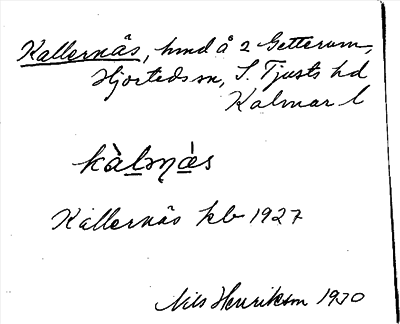 Kallernäs, hmd å 2 Getterum,
Hjorteds sn, S. Tjusts hd
Kalmar l
kàlṇás
Källernäs kb 1927
Nils Henrikson 1930